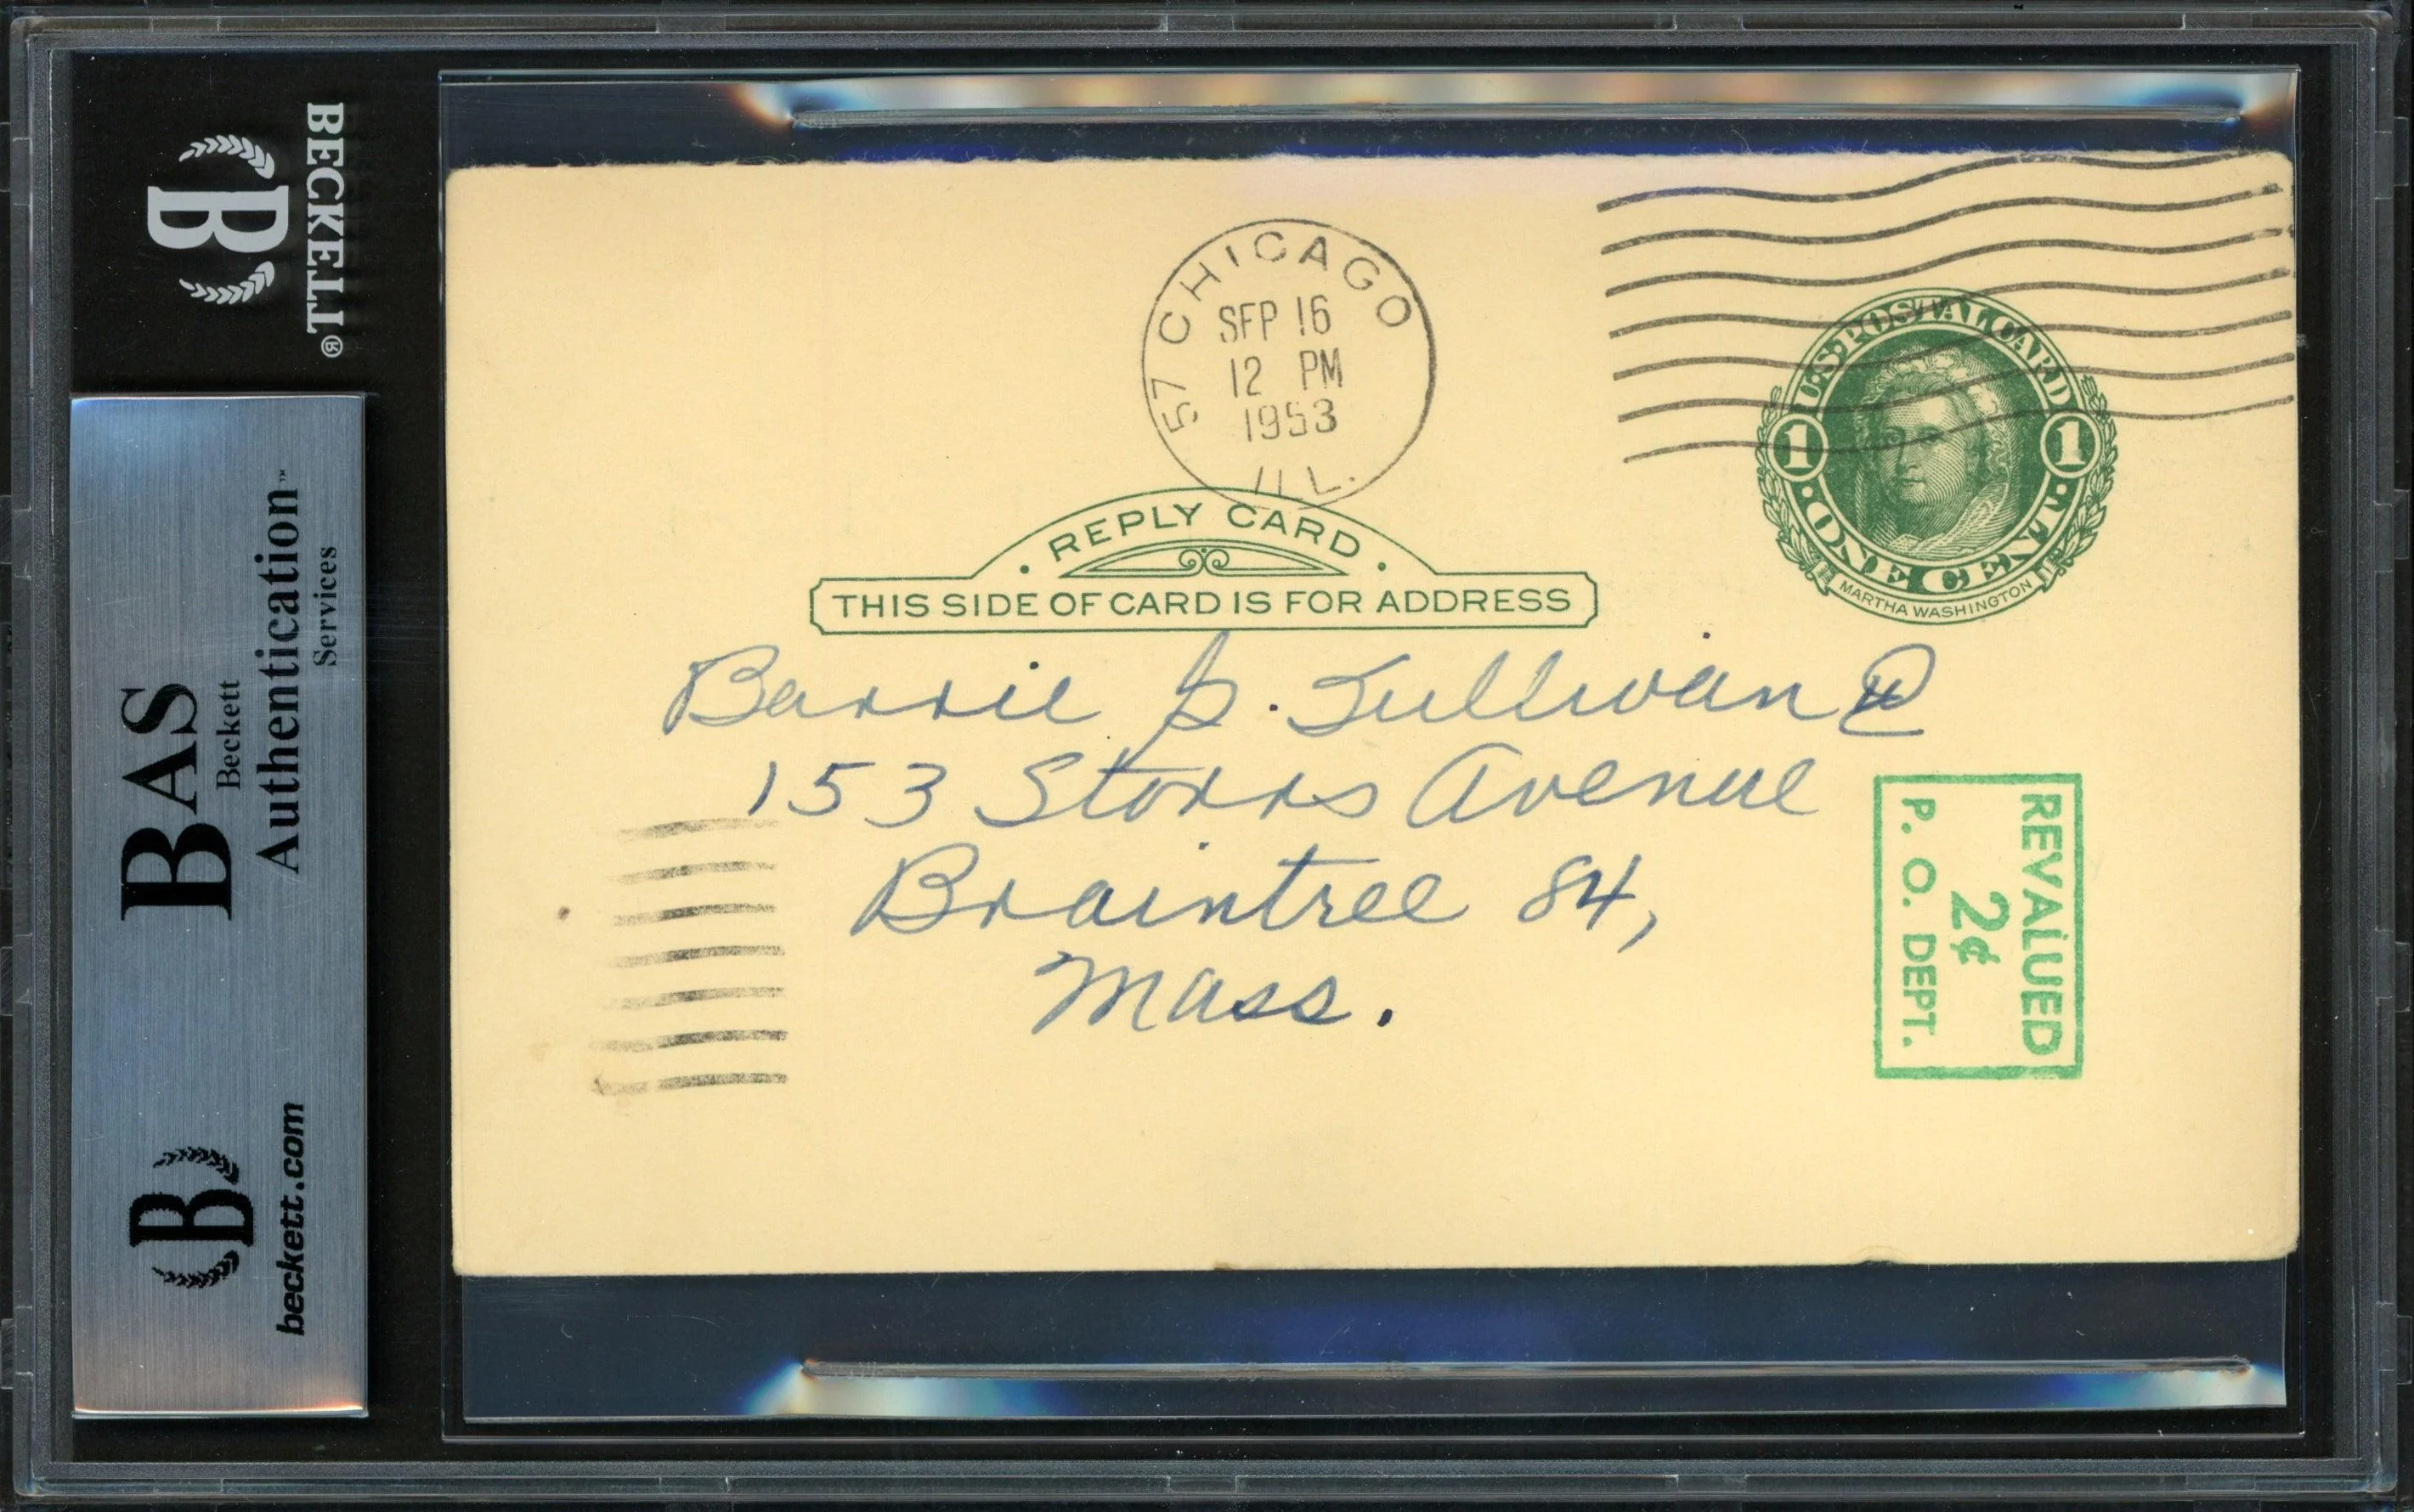 BECKETT®
B
BAS
Beckett
Authentication™
Services
B
beckett.com
57 CHICAGO
SEP 16
12 PM
1953
ILL.
U.S. POSTAL CARD
1 1
· ONE CENT ·
MARTHA WASHINGTON
· REPLY CARD ·
THIS SIDE OF CARD IS FOR ADDRESS
Barrie Sullivan
153 Storrs Avenue
Braintree 84,
Mass.
REVALUED
2¢
P. O. DEPT.